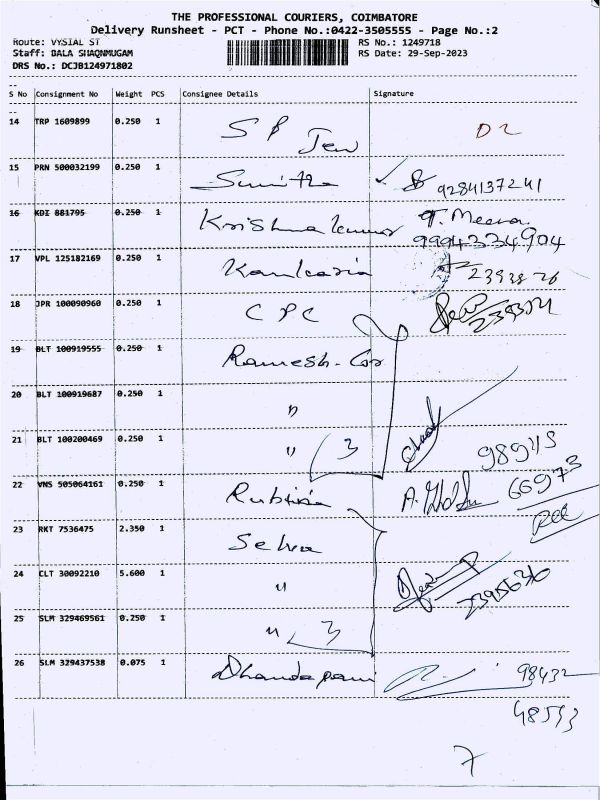 THE PROFESSIONAL COURIERS, COIMBATORE
Delivery Runsheet - PCT - Phone No.:0422-3505555 - Page No.:2
Route: VYSIAL ST RS No.: 1249718
Staff: BALA SHAQNMUGAM RS Date: 29-Sep-2023
DRS No.: DCJB124971802
S No Consignment No Weight PCS Consignee Details Signature
14 TRP 1609899 0.250 1 S P Jew D2
15 PRN 500032199 0.250 1 Sunitha 9284137241
16 KDI 881795 0.250 1 Krishna kumar T. Meena
9994334904
17 VPL 125182169 0.250 1 Kankaria
18 JPR 100090960 0.250 1 C P C
19 BLT 100919555 0.250 1 Ramesh-
20 BLT 100919687 0.250 1 "
21 BLT 100200469 0.250 1 " 3 98945
22 VNS 505064161 0.250 1 66973
23 RKT 7536475 2.350 1 Selva
24 CLT 30092210 5.600 1 "
25 SLM 329469561 0.250 1 " 3
26 SLM 329437538 0.075 1 Dhandapani 98432
48593
7